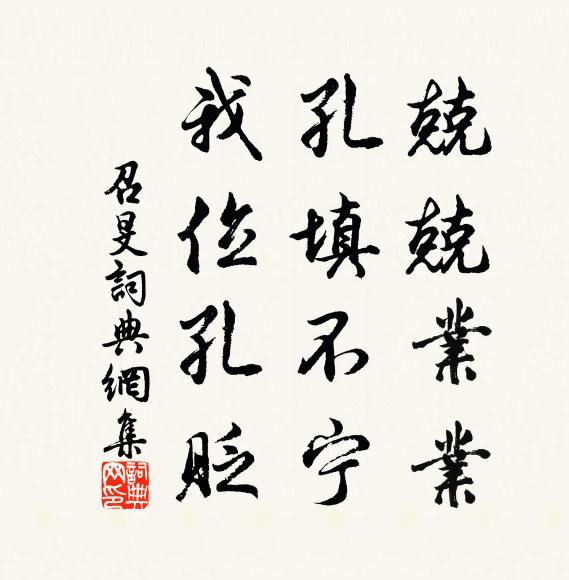 兢兢業業
孔填不宁
我位孔貶
召旻詞典網集
詞典網印